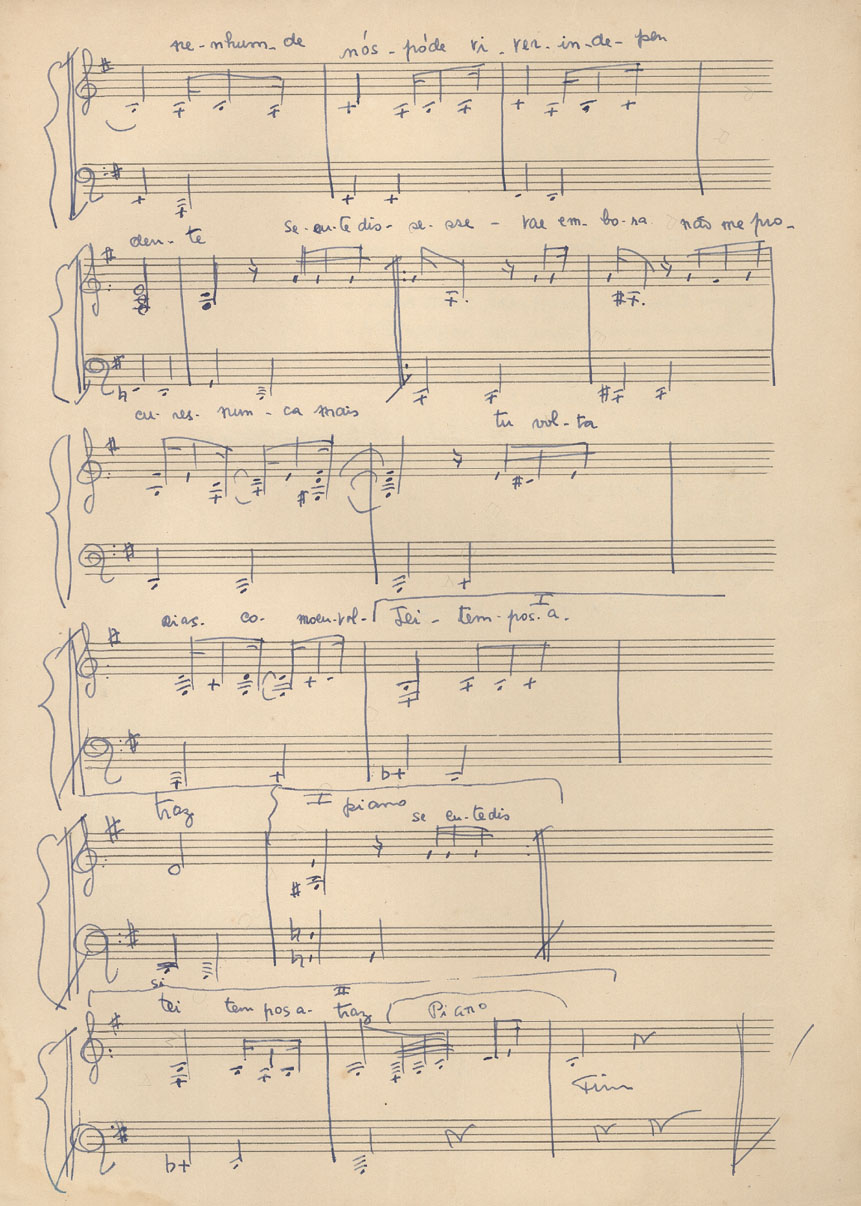 ne-nhum-de nós-póde vi-ver-in-de-pen
den-te se-eu-te dis-se-sse-vae em-bo-ra não me pro-
cu-res-nun-ca mais tu vol-ta
rias-co-moeu-vol-tei-tem-pos-a-
I
traz I piano se eu-te dis
si
tei tem pos a-traz II Piano
Fim